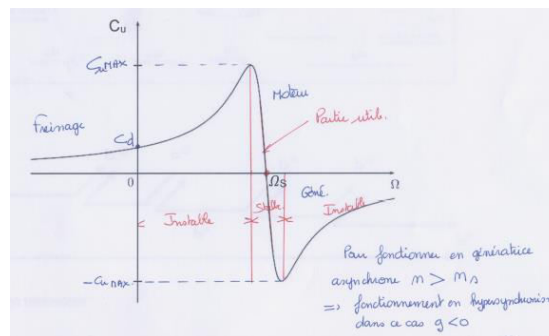 Cu
Cu MAX
Moteur
Freinage
Partie util.
Cd
0
Ωs
Ω
Géné.
Instable
Stable
Instable
-Cu MAX
Pour fonctionner en génératrice
asynchrone n > ns
=> fonctionnement en hypersynchrone
dans ce cas g<0